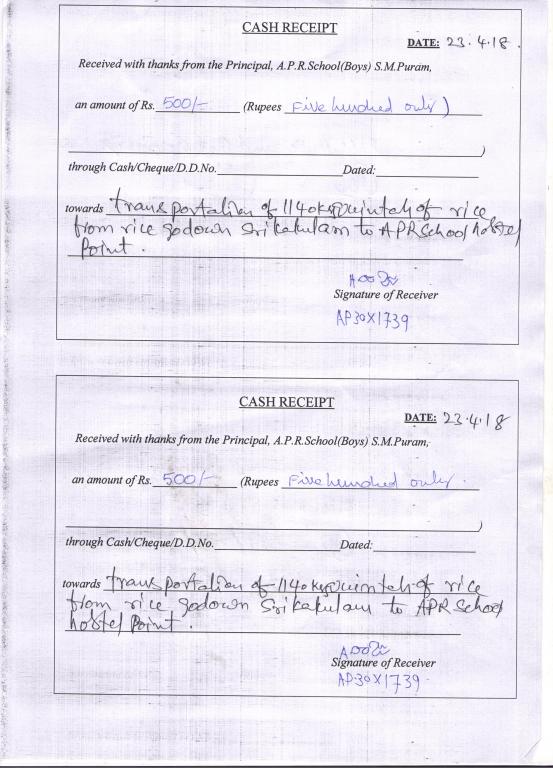 CASH RECEIPT
DATE: 23.4.18.
Received with thanks from the Principal, A.P.R.School(Boys) S.M.Puram,
an amount of Rs. 500/- (Rupees Five hundred only)
)
through Cash/Cheque/D.D.No. Dated:
towards transportation of 1140kgs quintals of rice
from rice godown Srikakulam to APRSchool hostel
Point.
Signature of Receiver
AP30X1739
CASH RECEIPT
DATE: 23.4.18
Received with thanks from the Principal, A.P.R.School(Boys) S.M.Puram,
an amount of Rs. 500/- (Rupees Five hundred only.
)
through Cash/Cheque/D.D.No. Dated:
towards transportation of 1140kgs quintals of rice
from rice godown Srikakulam to APR School
hostel Point.
Signature of Receiver
AP30X1739